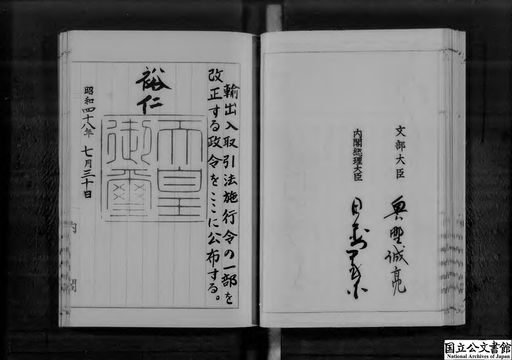 文部大臣 奥野誠亮
内閣総理大臣
輸出入取引法施行令の一部を
改正する政令をここに公布する。
裕仁
天皇御璽
昭和四十八年 七月三十日
内閣
国立公文書館
National Archives of Japan